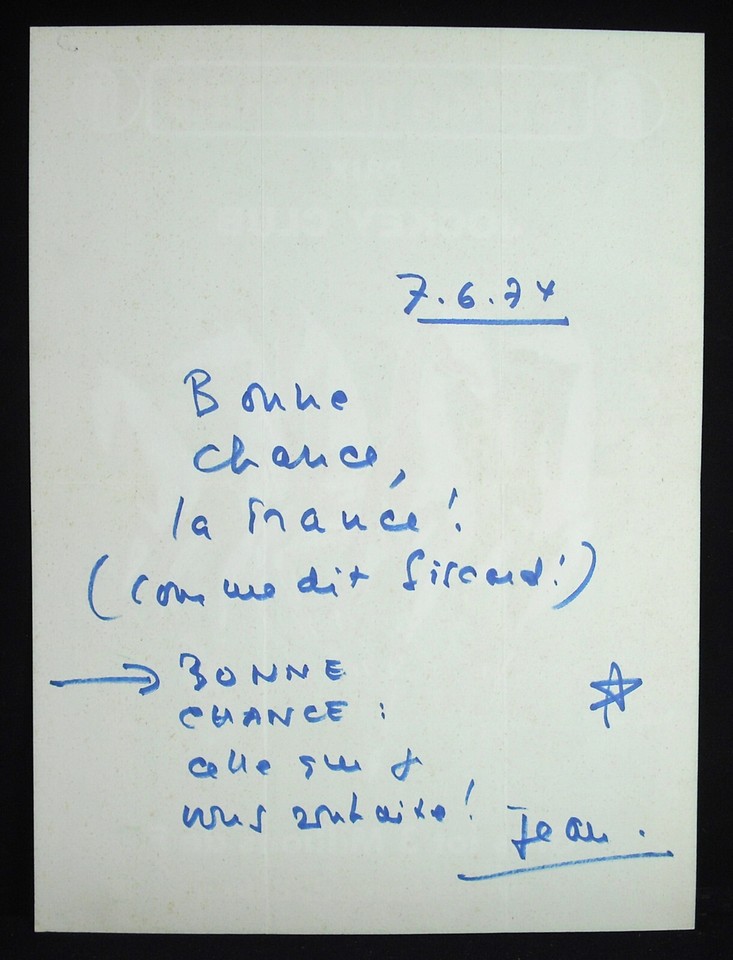 7.6.74
Bonne
chance,
la France!
(comme dit Giscard!)
BONNE
CHANCE :
celle que je
vous souhaite!
Jean.